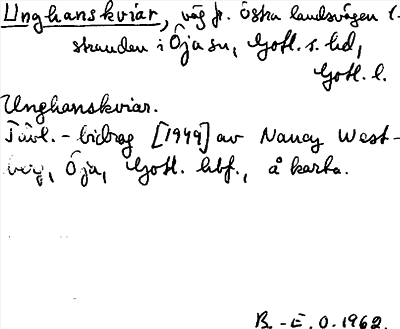 Unghanskviar, väg fr. östra landsvägen t.
stranden i Öja sn, Gotl. s. hd,
Gotl. l.
Unghanskviar.
Tävl.-bidrag [1949] av Nancy West-
berg, Öja, Gotl. hbf., å karta.
B.-E. O. 1962.